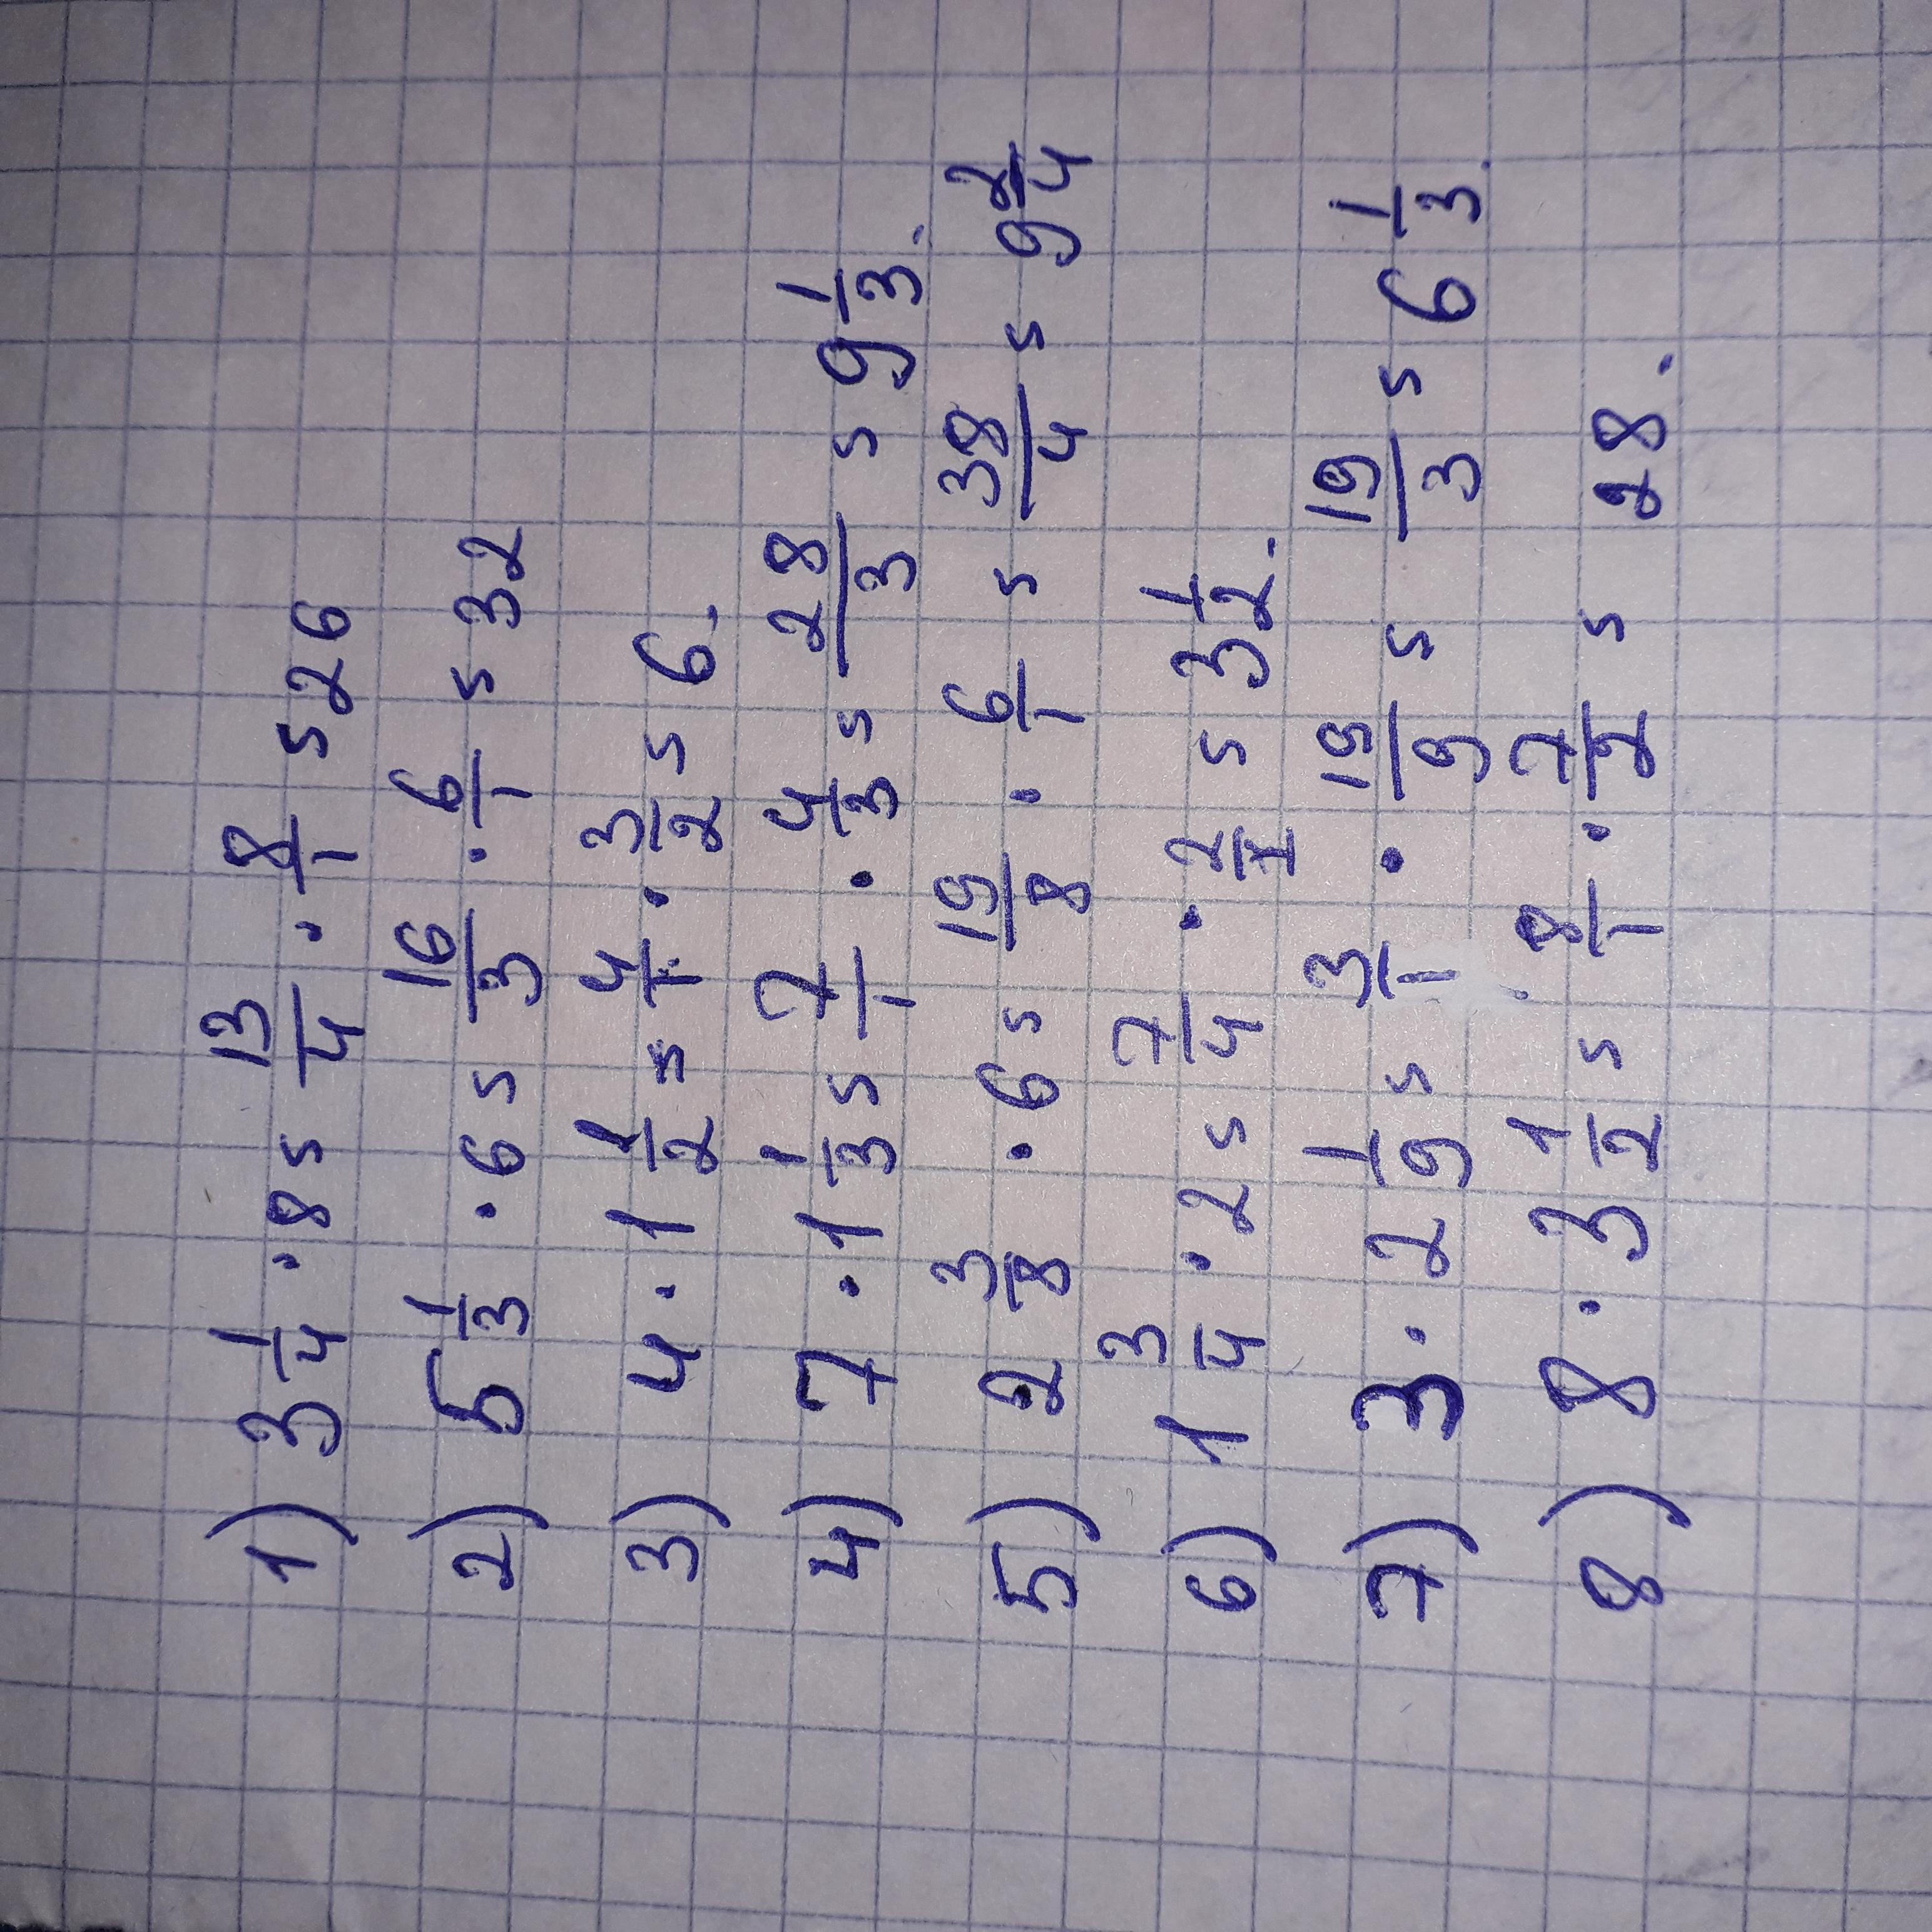 1) 3 1/4 · 8 = 13/4 · 8/1 = 26
2) 5 1/3 · 6 = 16/3 · 6/1 = 32
3) 4 · 1 1/2 = 4/1 · 3/2 = 6.
4) 7 · 1 1/3 = 7/1 · 4/3 = 28/3 = 9 1/3.
5) 2 3/8 · 6 = 19/8 · 6/1 = 38/4 = 9 2/4
6) 1 3/4 · 2 = 7/4 · 2/1 = 3 1/2.
7) 3 · 2 1/9 = 3/1 · 19/9 = 19/3 = 6 1/3.
8) 8 · 3 1/2 = 8/1 · 7/2 = 28.